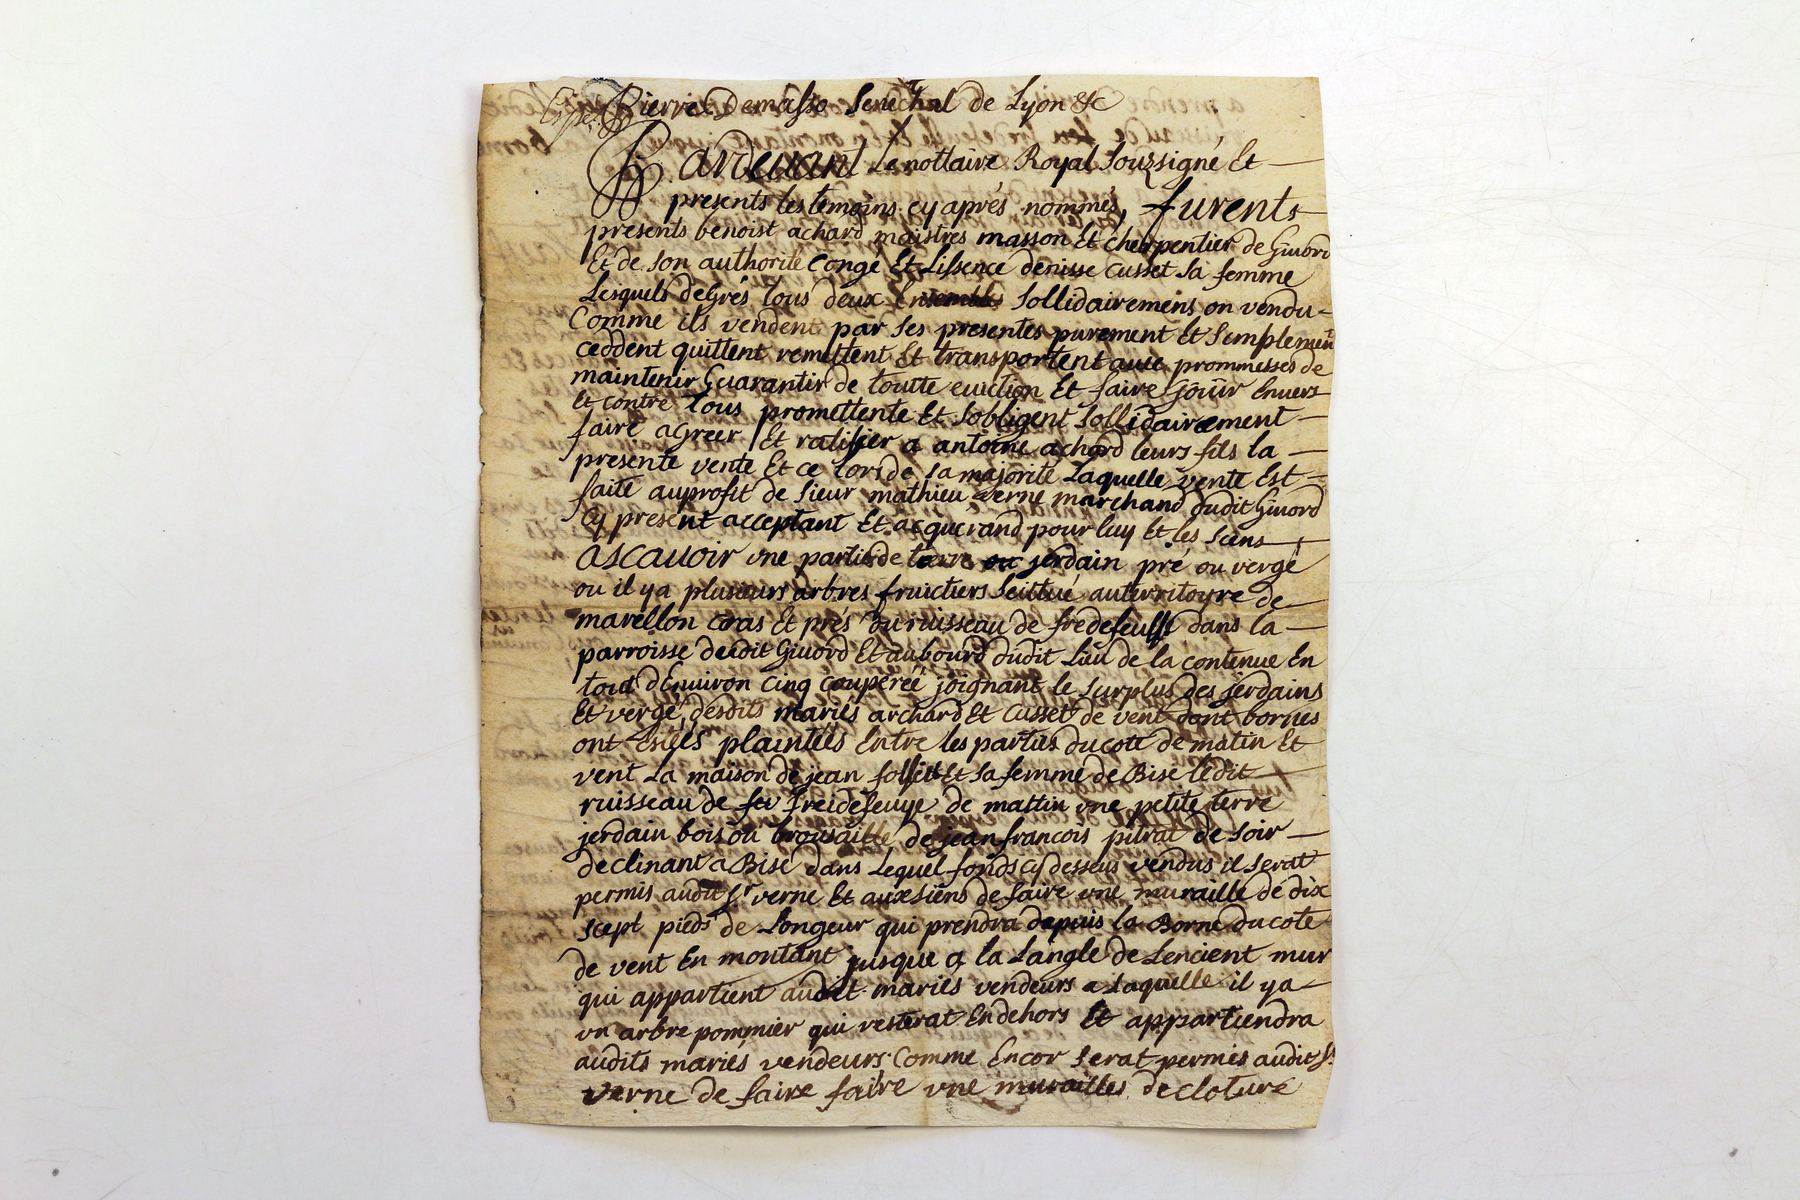 Pierre Demasso Senechal de Lyon &c
Pardeuant Le nottaire Royal Souzsigné Et
presents les temoins cy aprés nommés, furents
présents benoist achard maistres masson Et cherpentier de Giuord
Et de son authorité Congé Et Lissence denisse Cusset sa femme
Lesquels de Grés tous deux Ensembles Sollidairemens on vendu
Comme ils vendent par Ses presentes purement Et Semplement
ceddent quittent remettent Et transportent auec prommesses de
maintenir Guarantir de toutte euiction Et faire joüir Enuers
Et contre tous promettente Et Sobligent Sollidairement
faire agreer Et ratifier a antoine achard leurs fils la
presente vente Et ce lors de sa majorité Laquelle vente Est
faite auprofit de Sieur mathieu verne marchand dudit Giuord
Cy present acceptant Et acquerand pour luy Et les Siens
ascauoir vne partie de terre ou jerdain pré ou vergé
ou il ya plusieurs arbres fruictiers Scittué auterritoyre de
marellon Et prés du ruisseau de fredefeulle dans la
parroisse dudit Giuord Et aubourd dudit Lieu de la contenue En
tout dEnuiron cinq coupéréé joignant le surplus des jerdains
Et vergé desdits mariés archard Et Cusset de vent dont bornes
ont Estéés plaintéés Entre les parties ducoté de matin Et
vent La maison de jean follict Et sa femme de Bise ledit
ruisseau de freidefeuye de mattin vne petite terre
jerdain bois ou brousaille de jean francois pitrat de Soir
declinant a Bise dans Lequel fonds cy dessus vendus il Serat
permis audit Sr verne Et aux siens de faire vne muraille de dix
scept pieds de Longeur qui prendra depuis la Borne ducoté
de vent En montant jusque a la Langle de Lencient mur
qui appartient audit mariés vendeurs a Laquelle il ya
vn arbre pommier qui resterat En dehors Et appartiendra
audits mariés vendeurs Comme Encor Serat permis audit Sr
verne de faire faire vne murailles de cloture